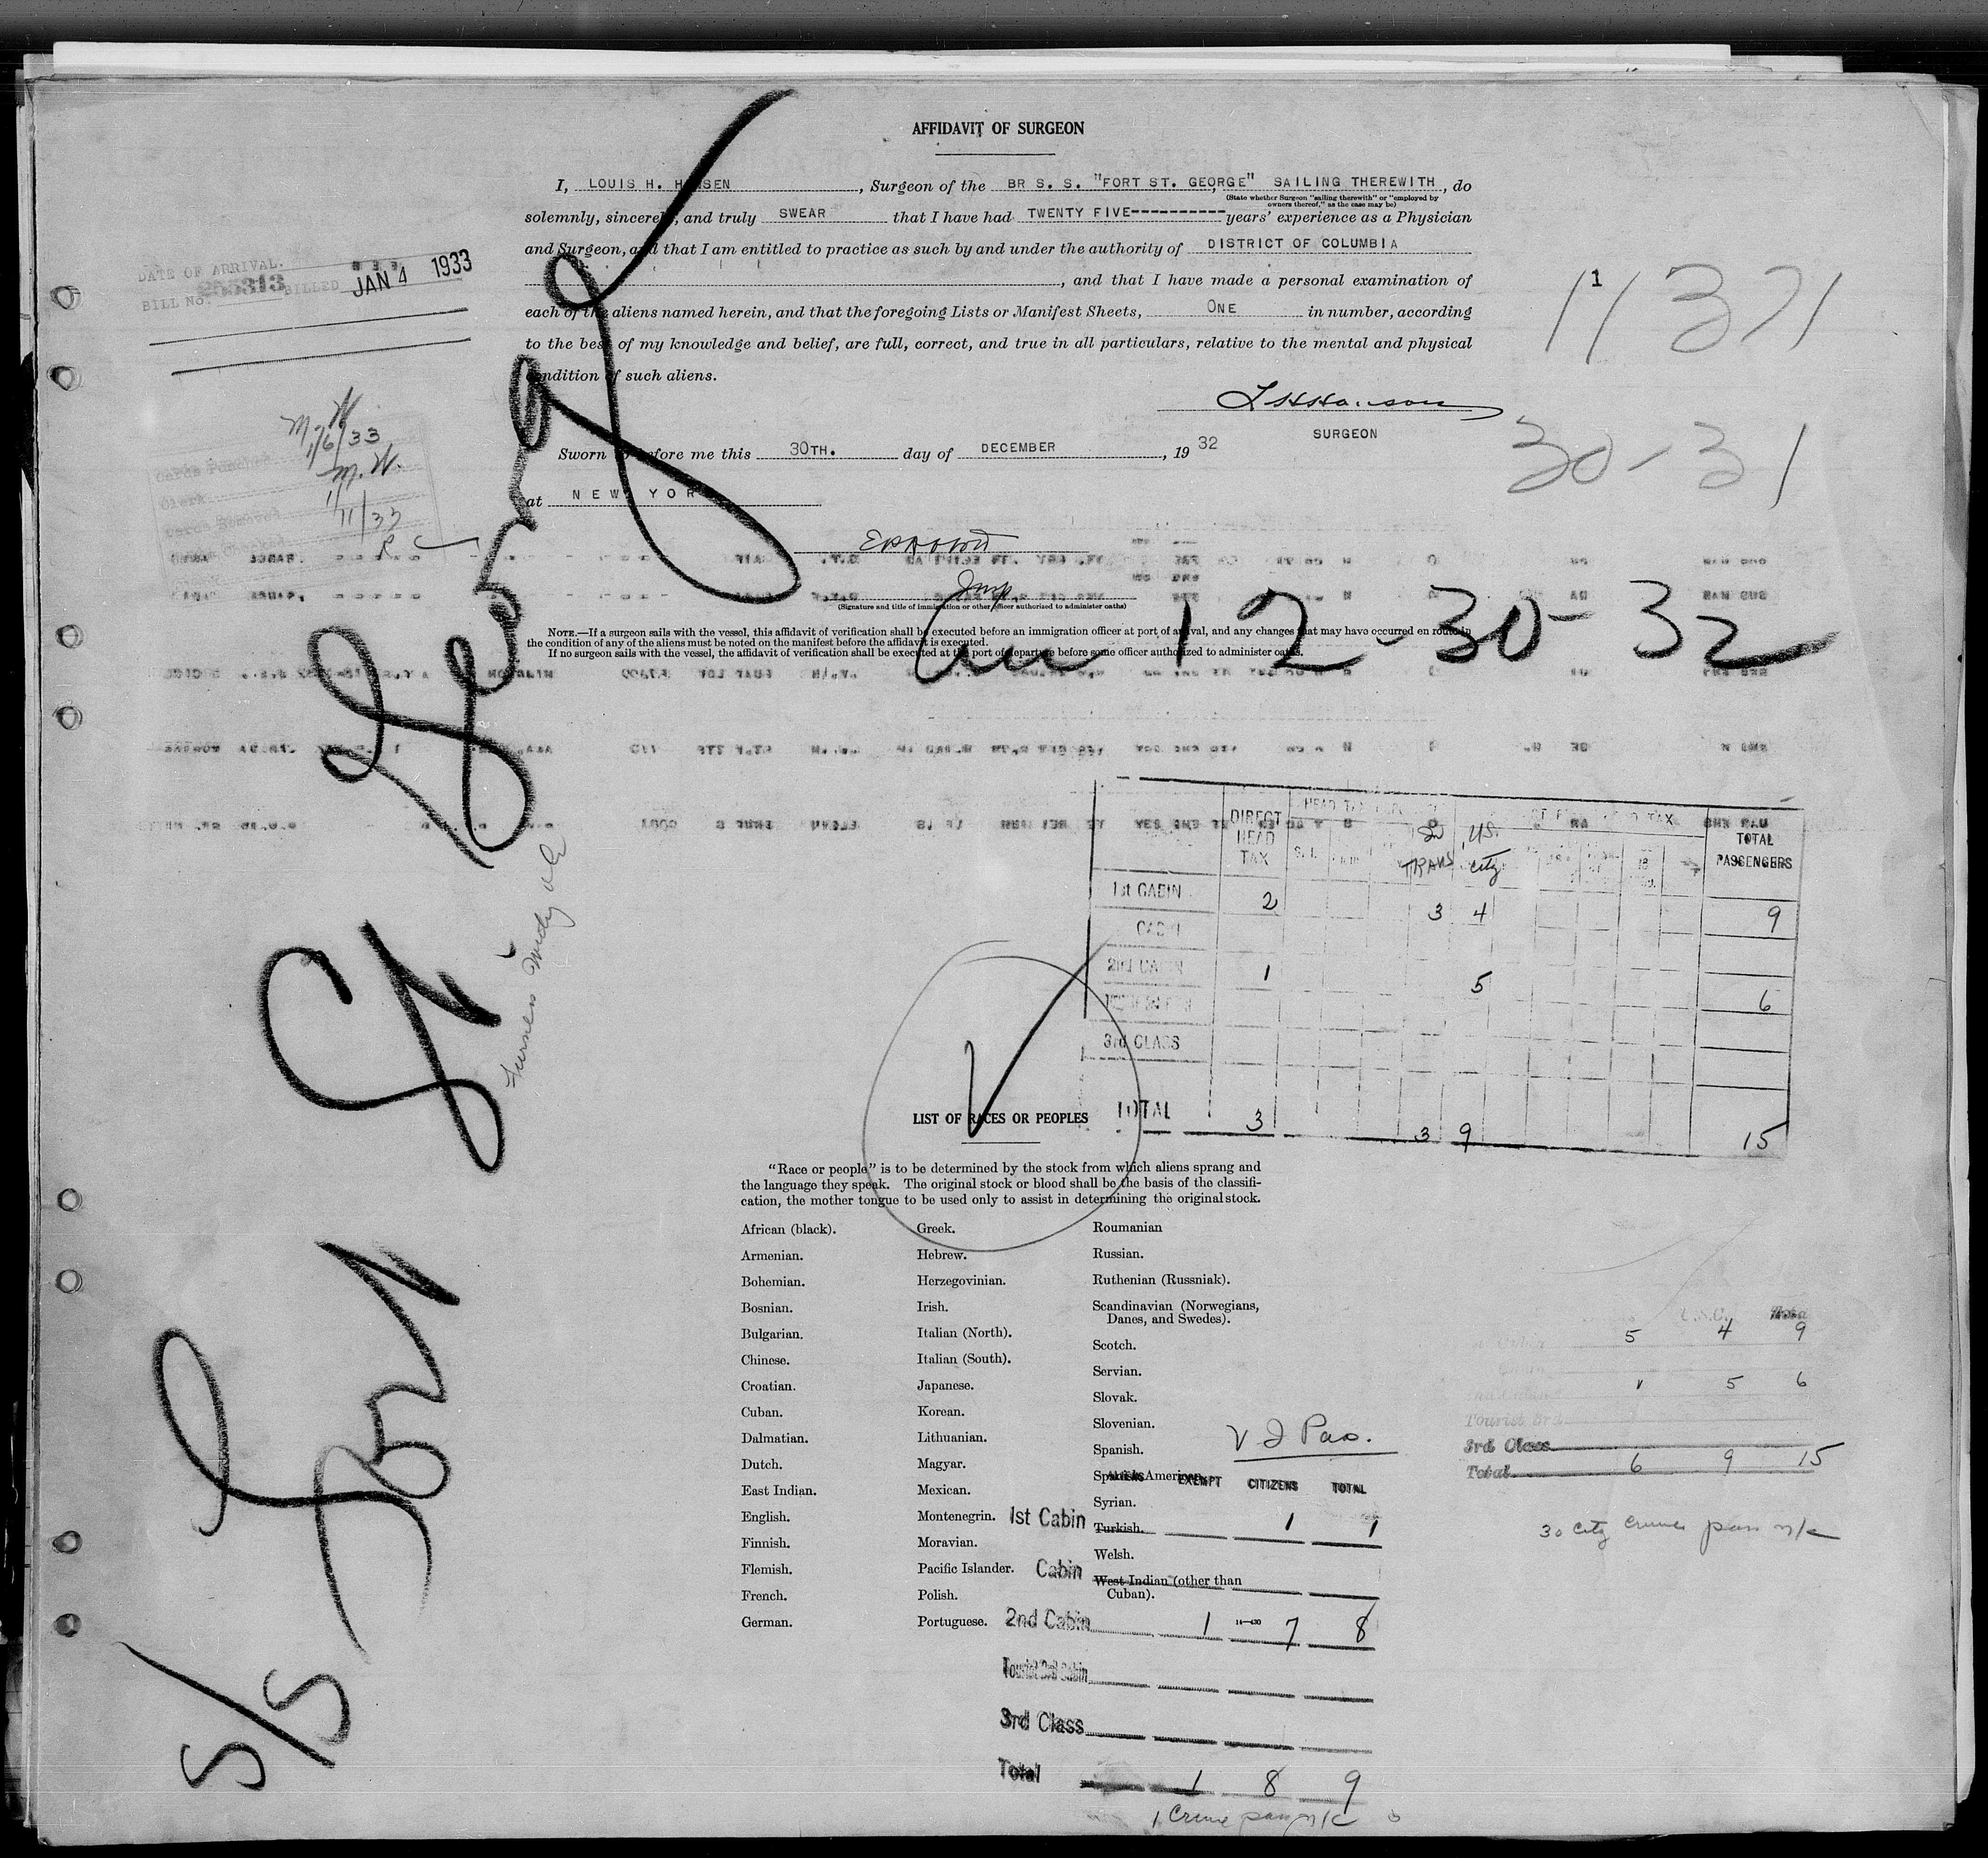 AFFIDAVIT OF SURGEON
I, LOUIS H. HANSEN, Surgeon of the BR S. S. "FORT ST. GEORGE" SAILING THEREWITH, do
(State whether Surgeon "sailing therewith" or "employed by
owners thereof," as the case may be)
solemnly, sincerely, and truly SWEAR that I have had TWENTY FIVE---------- years' experience as a Physician
and Surgeon, and that I am entitled to practice as such by and under the authority of DISTRICT OF COLUMBIA
, and that I have made a personal examination of
each of the aliens named herein, and that the foregoing Lists or Manifest Sheets, ONE in number, according
to the best of my knowledge and belief, are full, correct, and true in all particulars, relative to the mental and physical
condition of such aliens.
SURGEON
Sworn to before me this 30TH. day of DECEMBER, 19 32
at NEW YORK
(Signature and title of immigration or other officer authorized to administer oaths)
NOTE.—If a surgeon sails with the vessel, this affidavit of verification shall be executed before an immigration officer at port of arrival, and any changes that may have occurred en route in
the condition of any of the aliens must be noted on the manifest before the affidavit is executed.
If no surgeon sails with the vessel, the affidavit of verification shall be executed at the port of departure before some officer authorized to administer oaths.
DATE OF ARRIVAL.
BILL No. BILLED JAN 4 1933
M.W.
1/6/33
M.W.
1/11/33
Cards Punched
Clerk
Cards Removed
1
11371
30-31
S/S Fort St. George
arr 12-30-32
DIRECT HEAD TAX
TRANS
U.S. City
TOTAL PASSENGERS
1st CABIN 2 3 4 9
CABIN
2nd CABIN 1 5 6
3rd CLASS
TOTAL 3 3 9 15
LIST OF RACES OR PEOPLES
"Race or people" is to be determined by the stock from which aliens sprang and
the language they speak. The original stock or blood shall be the basis of the classifi-
cation, the mother tongue to be used only to assist in determining the original stock.
African (black).
Armenian.
Bohemian.
Bosnian.
Bulgarian.
Chinese.
Croatian.
Cuban.
Dalmatian.
Dutch.
East Indian.
English.
Finnish.
Flemish.
French.
German.
Greek.
Hebrew.
Herzegovinian.
Irish.
Italian (North).
Italian (South).
Japanese.
Korean.
Lithuanian.
Magyar.
Mexican.
Montenegrin.
Moravian.
Pacific Islander.
Polish.
Portuguese.
Roumanian
Russian.
Ruthenian (Russniak).
Scandinavian (Norwegians,
Danes, and Swedes).
Scotch.
Servian.
Slovak.
Slovenian.
Spanish.
Spanish American.
Syrian.
Turkish.
Welsh.
West Indian (other than
Cuban).
14—430
V I Pas.
ALIENS EXEMPT CITIZENS TOTAL
1st Cabin 1 1
Cabin
2nd Cabin 1 7 8
Tourist 3rd Cabin
3rd Class
Total 1 8 9
U.S.C. Total
5 4 9
1 5 6
Tourist 3rd
3rd Class
Total 6 9 15